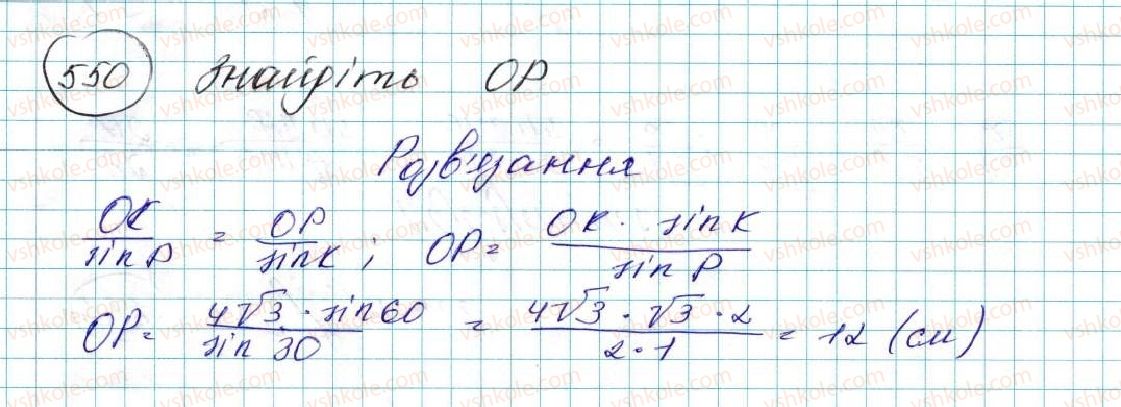 550 Знайдіть OP
Розв'язання
OK/sin P = OP/sin K ; OP = OK · sin K/sin P
OP = 4√3 · sin 60/sin 30 = 4√3 · √3 · 2/2 · 1 = 12 (см)